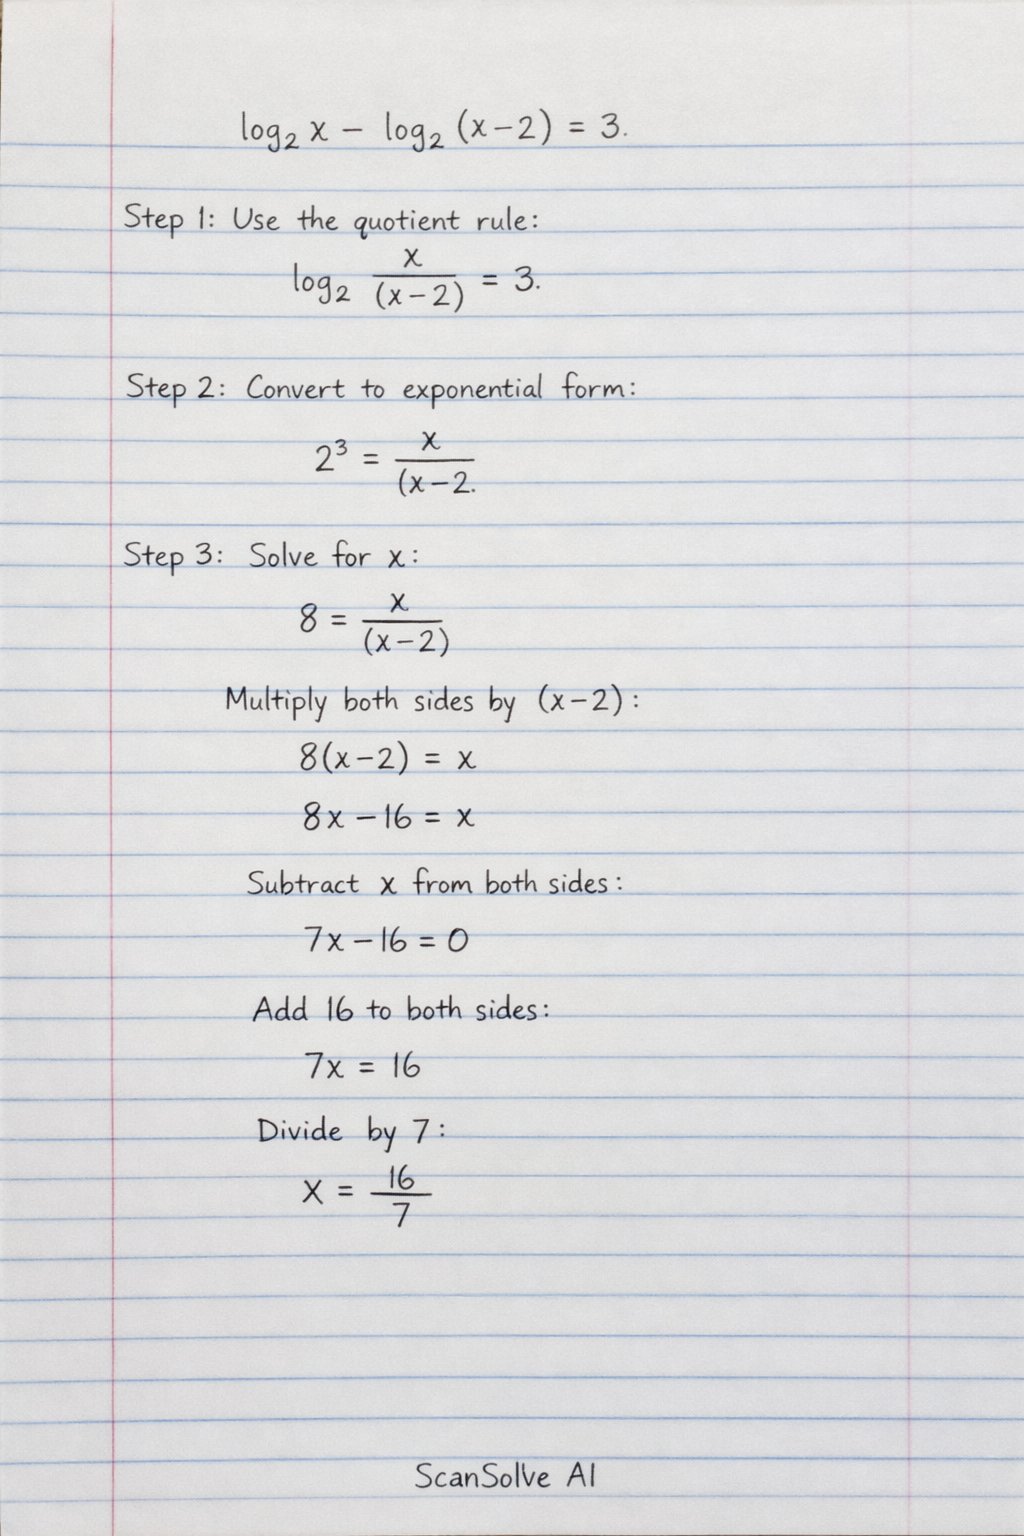 log₂ x − log₂ (x−2) = 3.
Step 1: Use the quotient rule:
log₂ x/(x−2) = 3.
Step 2: Convert to exponential form:
2³ = x/(x−2.
Step 3: Solve for x:
8 = x/(x−2)
Multiply both sides by (x−2):
8(x−2) = x
8x −16 = x
Subtract x from both sides:
7x −16 = 0
Add 16 to both sides:
7x = 16
Divide by 7:
x = 16/7
ScanSolve AI